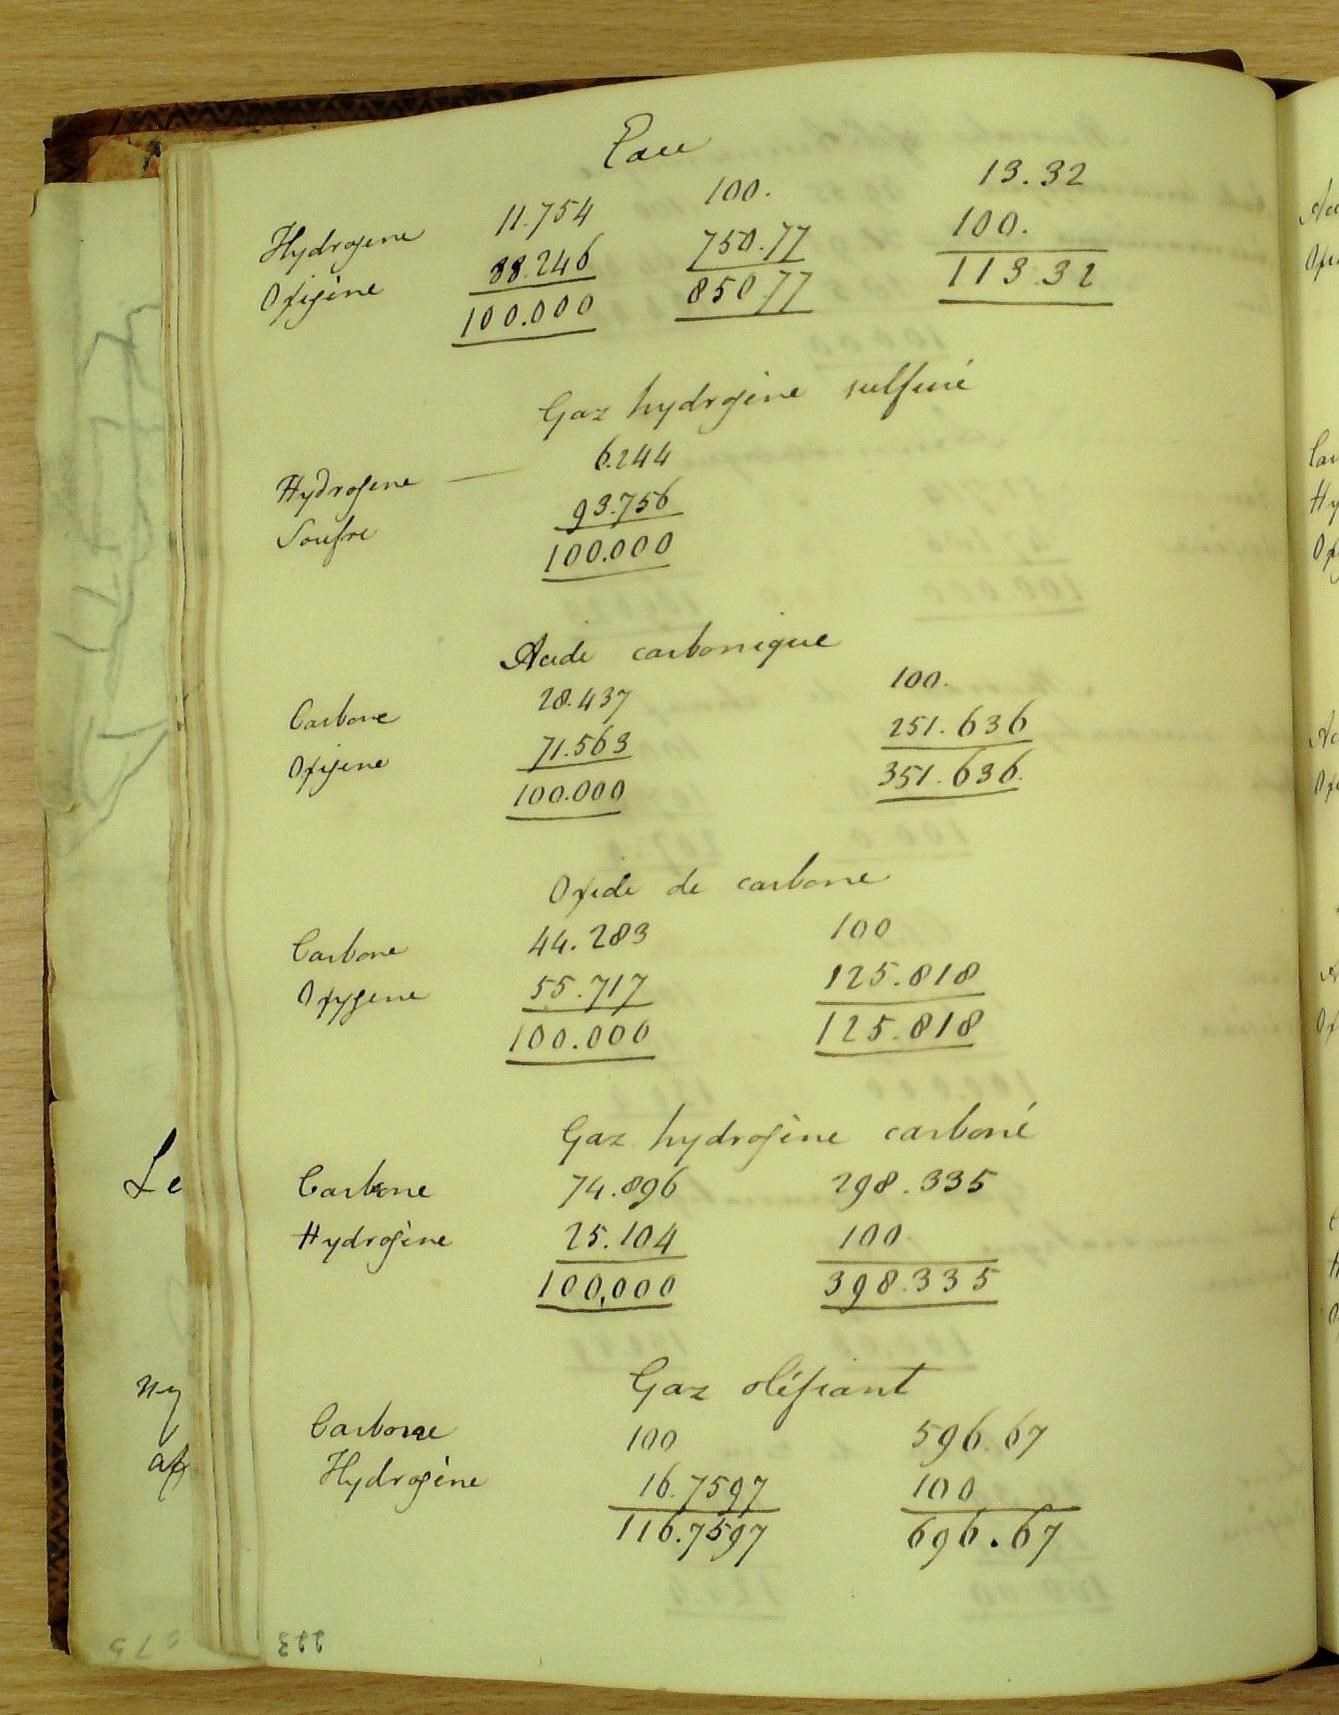 Eau
Hydrogene 11.754 100. 13.32
Oxigène 88.246 750.77 100.
100.000 850.77 113.32
Gaz hydrogène sulfuré
Hydrogene — 6.244
Soufre 93.756
100.000
Acide carbonique
Carbone 28.437 100.
Oxigene 71.563 251.636
100.000 351.636.
Oxide de carbone
Carbone 44.283 100
Oxygene 55.717 125.818
100.000 125.818
Gaz hydrogène carboné
Carbone 74.896 298.335
Hydrogène 25.104 100.
100,000 398.335
Gaz oléfiant
Carbone 100 596.67
Hydrogène 16.7597 100
116.7597 696.67
Le
223